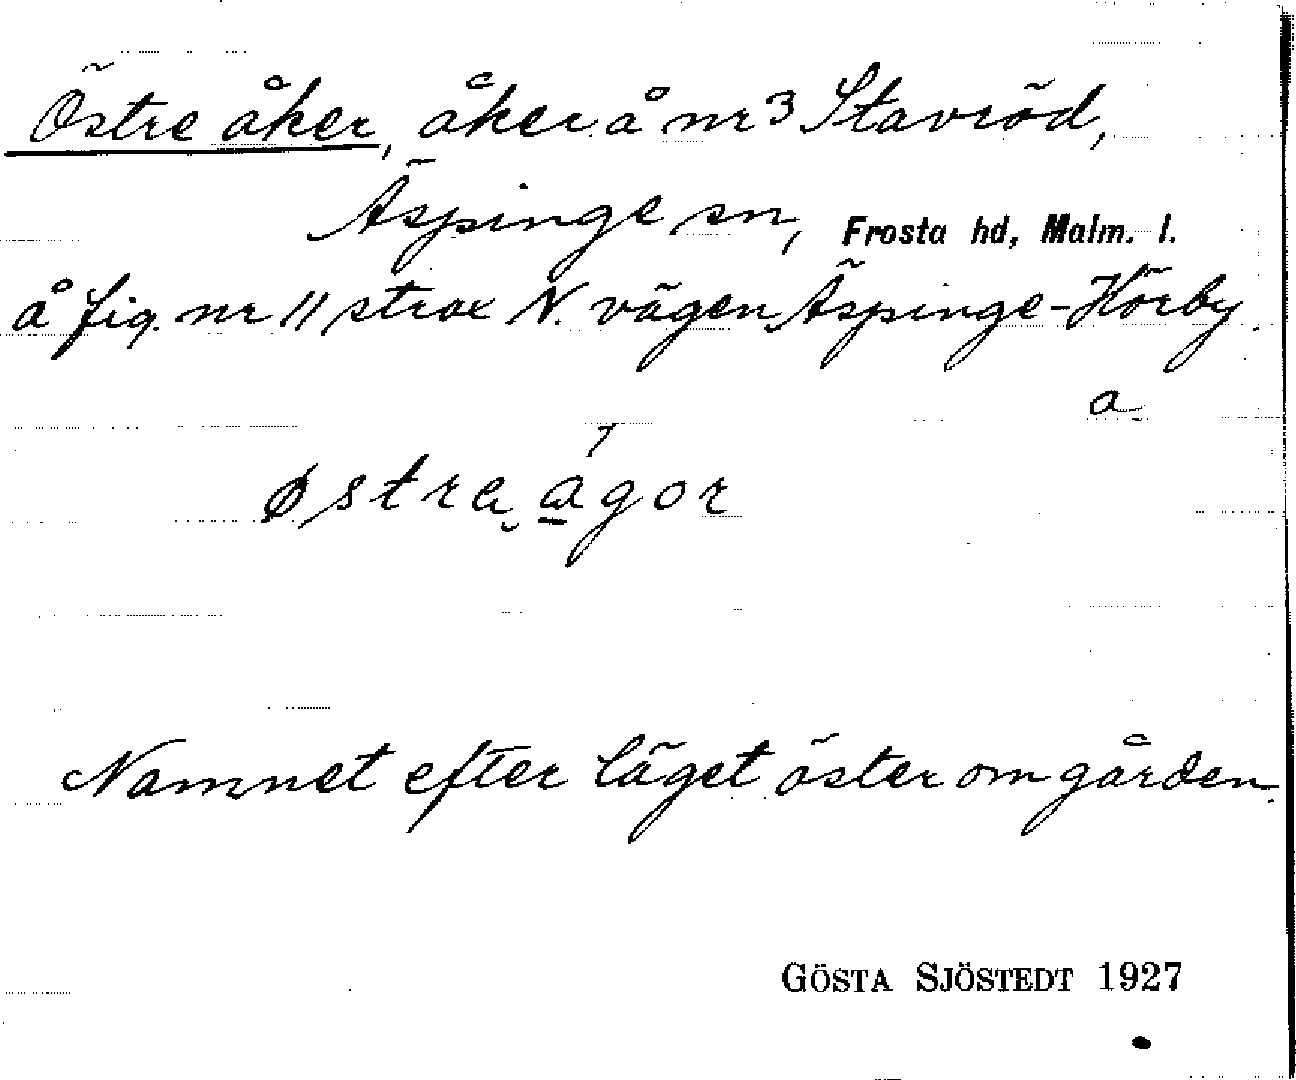 Östre åker, åker å nr 3 Stavröd,
Äspinge sn, Frosta hd, Malm. l.
å fig. nr 11 strax N. vägen Äspinge-Hörby.
a
østra ågor
Namnet efter läget öster om gården.
GÖSTA SJÖSTEDT 1927